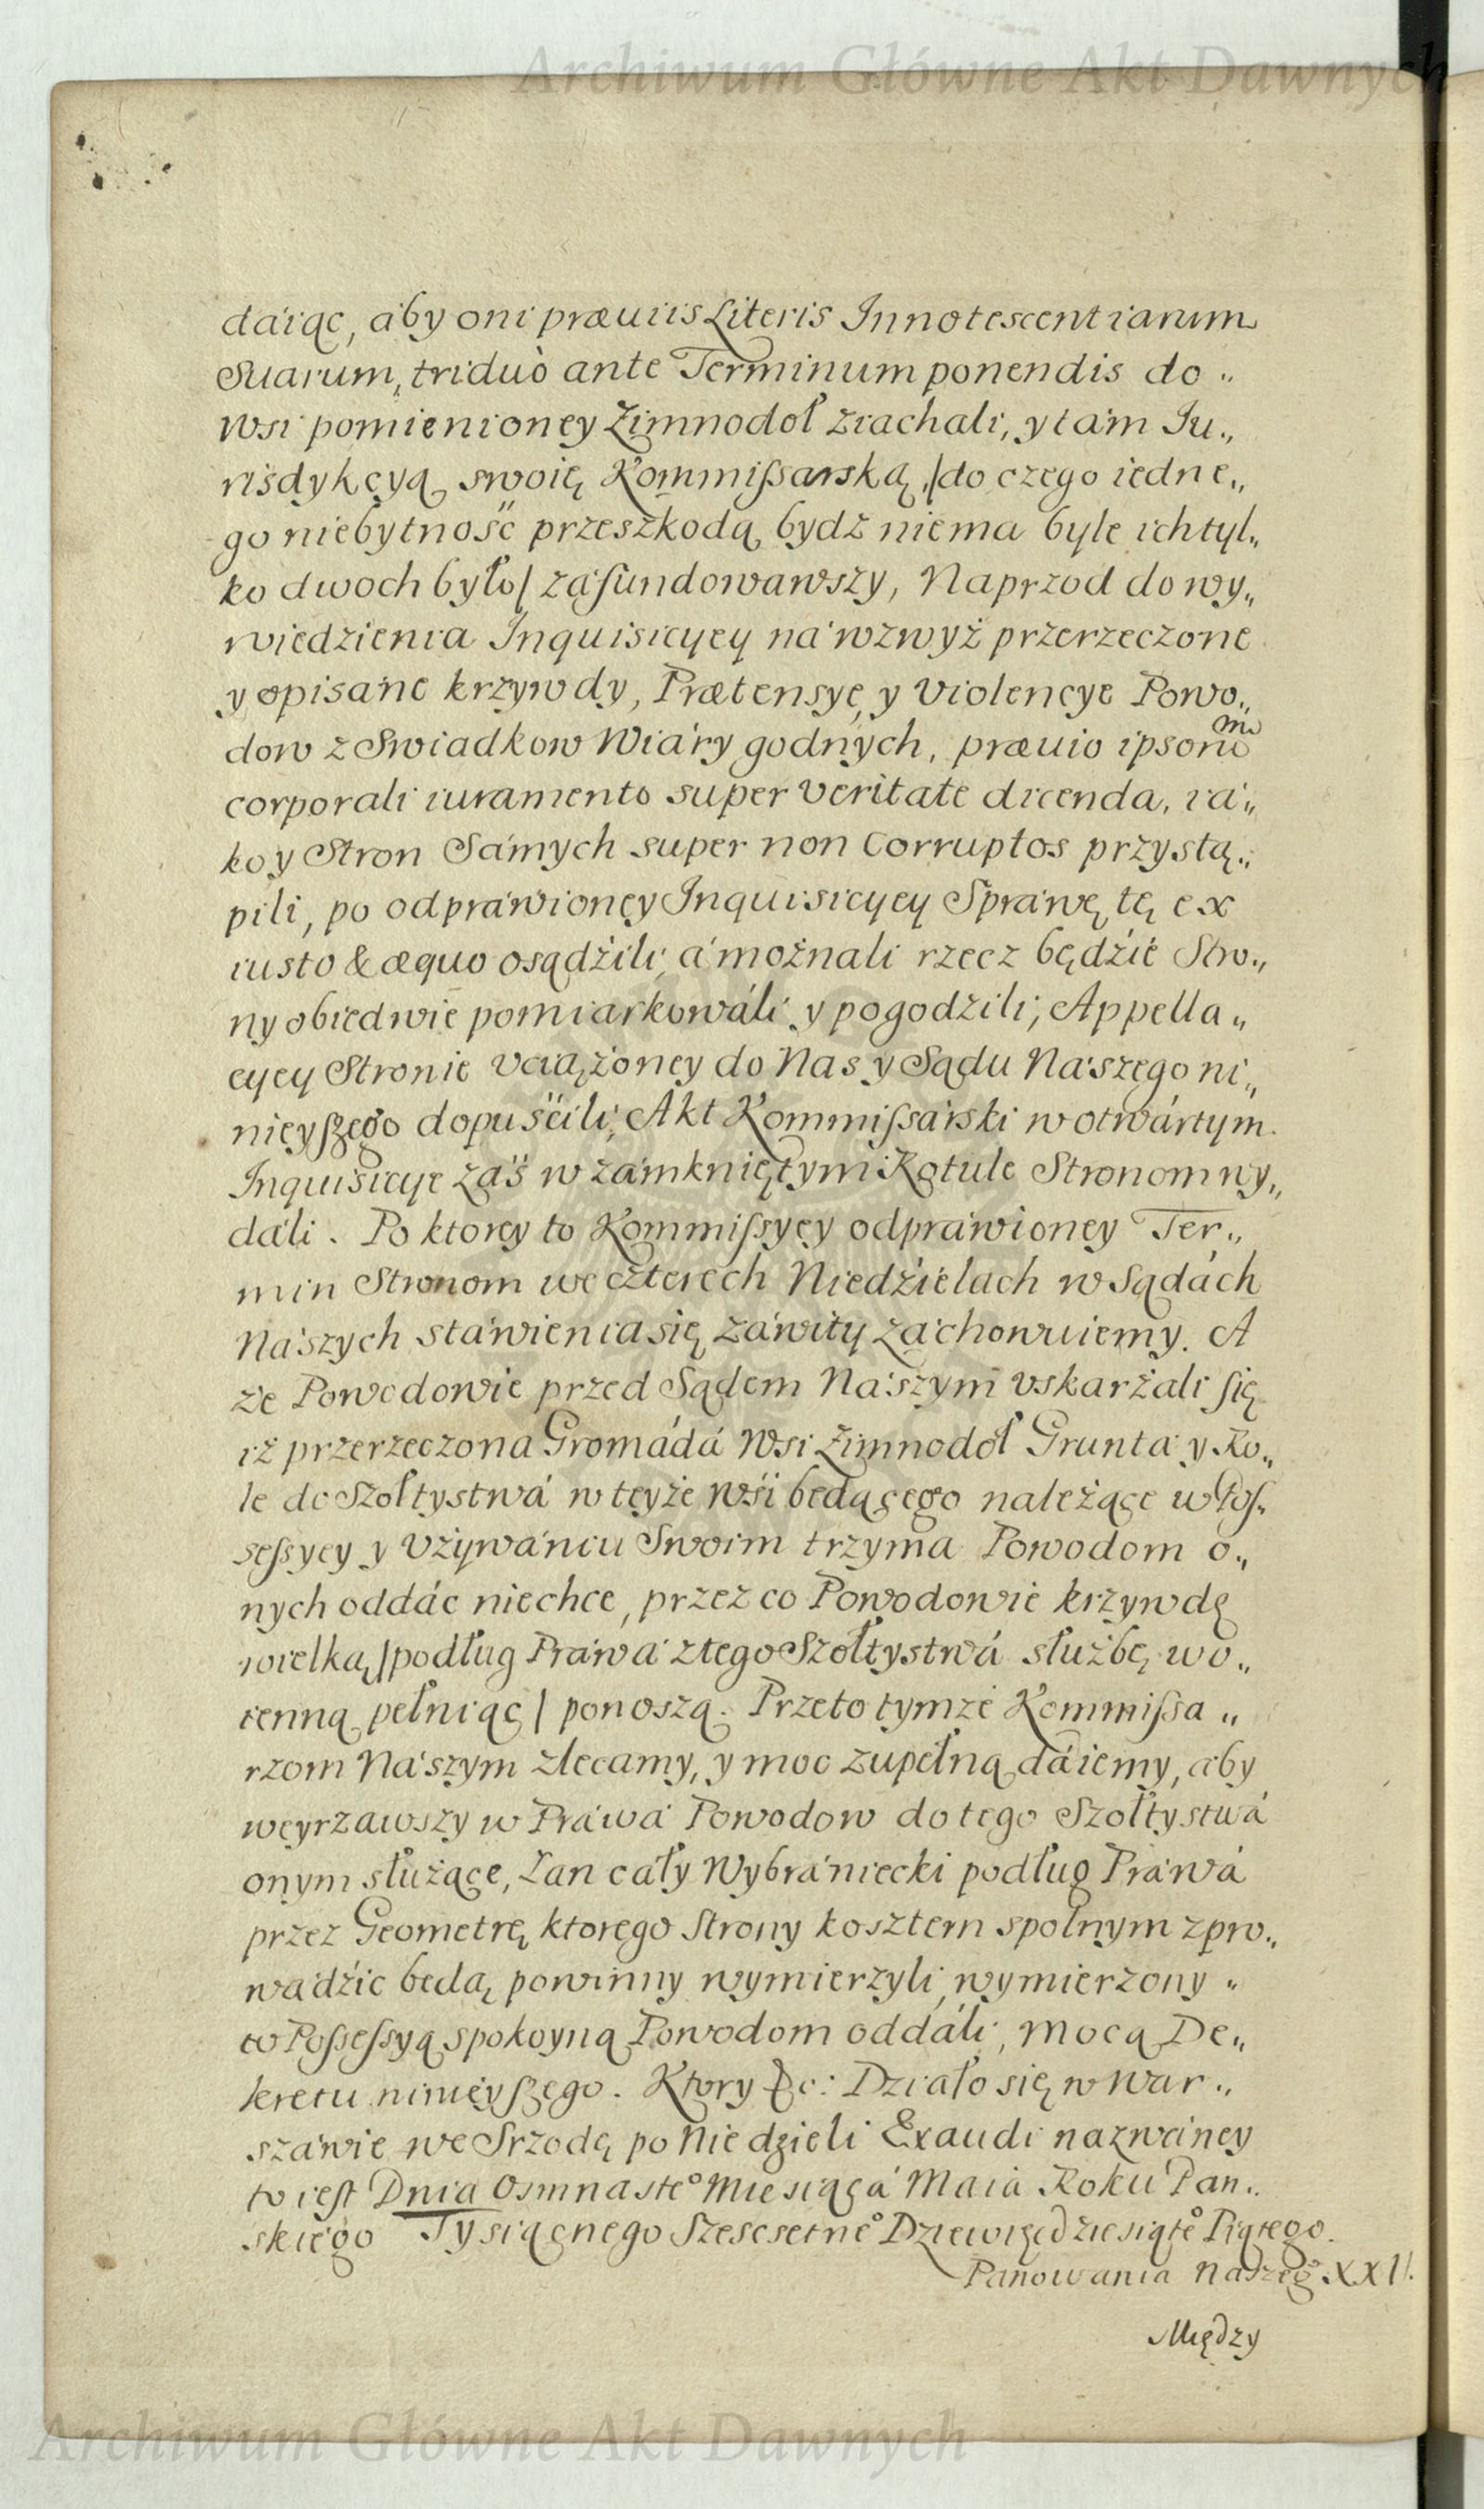 Archiwum Główne Akt Dawnych
dáiąc, áby oni præuiis Literis Innotescentiarum
Suarum, triduò ante Terminum ponendis do„
wsi pomienioney Zimnodoł ziachali, y tám Ju„
risdykcyą swoię Kommißarską, /do czego iedne„
go niebytność przeszkodą bydź niema byle ich tyl„
ko dwoch było/ záfundowawszy, Naprzod do wy„
wiedzienia Inquisicyey ná wzwyż przerzeczone
y opisáne krzywdy, Prætensye, y violencye Powo„
dow z Swiadkow Wiáry godnych, præuio ipsorum
corporali iuramento super veritate dicenda, iá„
ko y Stron Sámych super non Corruptos przystą„
pili, po odpráwioney Inquisicyey Spráwę tę ex
iusto & æquo osądźili, á możnali rzecz będźie Stro„
ny obiedwie pomiarkowáli y pogodźili, Appella„
cyey Stronie vciążoney do Nas y Sądu Nászego ni„
nieyszego dopuśćili, Akt Kommißárski w otwártym
Inquisicye záś w zámkniętym Rotule Stronom wy„
dáli. Po ktorey to Kommißyey odpráwioney Ter„
min Stronom we czterech Niedźielach w Sądách
Nászych stáwienia się záwity záchowuiemy. A
że Powodowie przed Sądem Nászym vskarżáli się
iż przerzeczona Gromádá Wsi Zimnodoł Gruntá y Ro„
le do Szołtystwá w teyże wśi będącego należące w Pos„
seßyey y Vżywániu Swoim trzyma Powodom o„
nych oddác niechce, przez co Powodowie krzywdę
wielką /podług Práwá z tego Szołtystwá służbę wo„
ienną pełniąc/ ponoszą. Przeto tymże Kommißa„
rzom Nászym zlecamy, y moc zupełną dáiemy, áby
weyrzawszy w Práwá Powodow do tego Szołtystwá
onym służące, Łan cáły Wybrániecki podług Práwá
przez Geometrę ktorego Strony kosztem spolnym zpro„
wádźic będą powinny wymierzyli, wymierzony„
w Poßeßyą spokoyną Powodom oddáli, Mocą De„
kretu ninieyszego. Ktory &c: Działo się w War„
száwie we Srzodę po Niedzieli Exaudi nazwáney
to iest Dnia Osmnaste° Miesiącá Maiá Roku Pan„
skiego Tysiącnego Szescsetne° Dziewięćdziesiąte° Piątego.
Panowania naszeg° XXII.
Między
Archiwum Główne Akt Dawnych